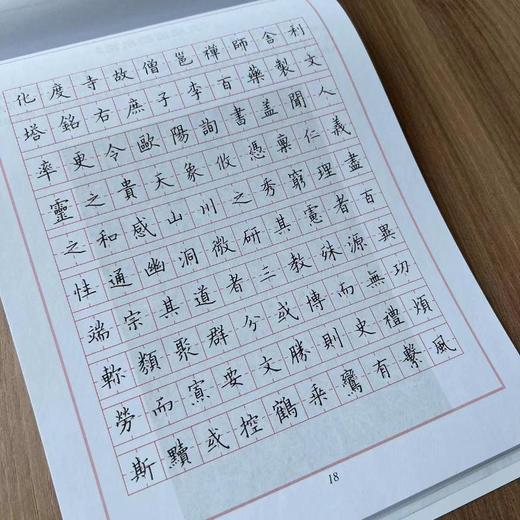 化度寺故僧邕禪師舍利
塔銘右庶子李百藥製文
率更令歐陽詢書盖聞人
靈之貴天象攸憑稟仁義
之和感山川之秀窮理盡
性通幽洞微研其慮者百
端宗其道者三教殊源異
軫類聚群分或博而無功
勞而寡要文勝則史禮煩
斯黷或控鶴乘鸞有繫風
18